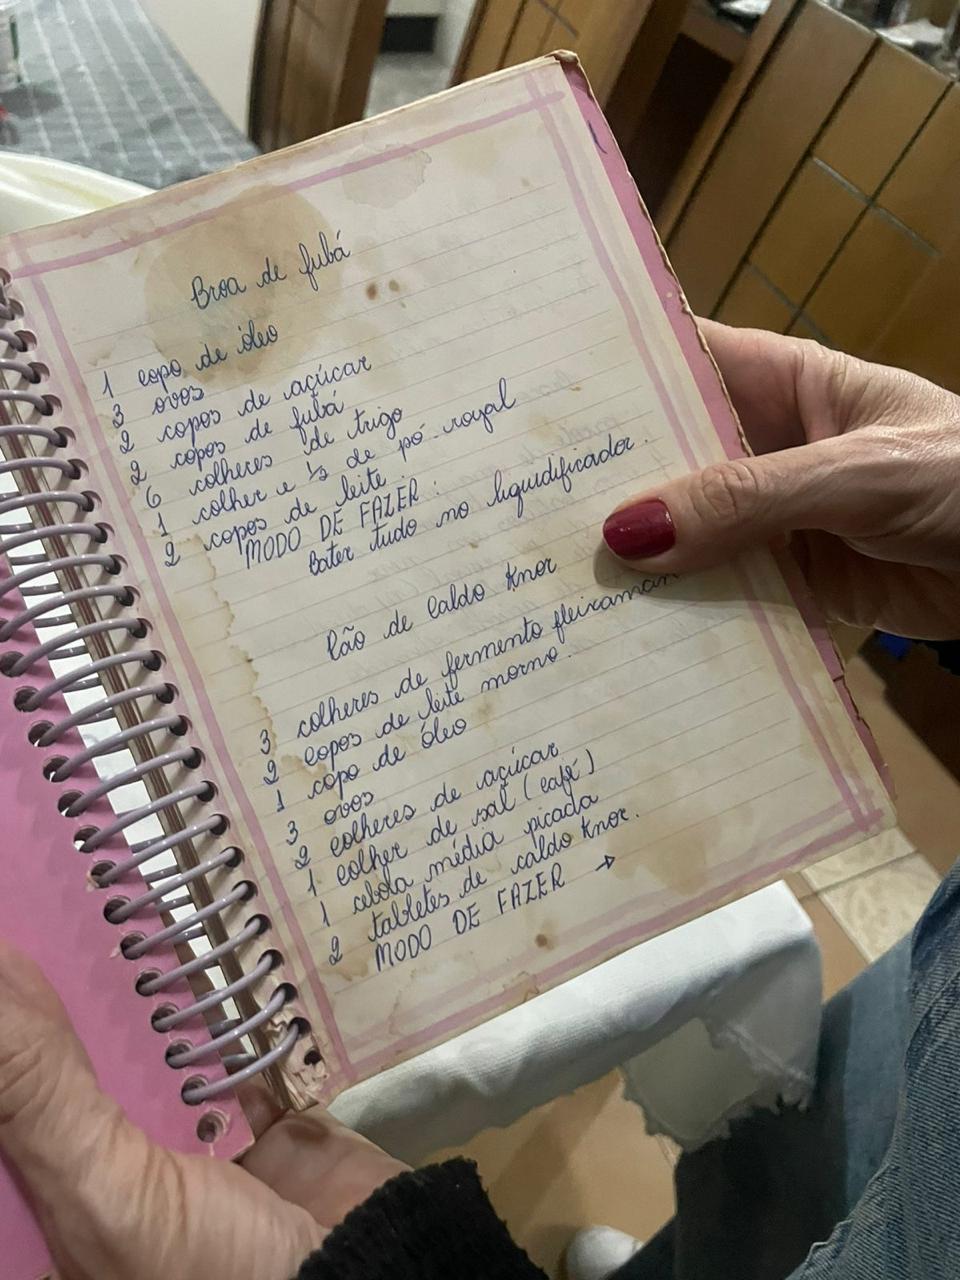 Broa de fubá
1 copo de óleo
3 ovos
2 copos de açúcar
2 copos de fubá
6 colheres de trigo
1 colher e 1/2 de pó royal
2 copos de leite
MODO DE FAZER:
Bater tudo no liquidificador.
Pão de Caldo Knor
3 colheres de fermento fleixaman
2 copos de leite morno.
1 copo de óleo
3 ovos
2 colheres de açúcar
1 colher de sal (café)
1 cebola média picada
2 tabletes de caldo Knor.
MODO DE FAZER →